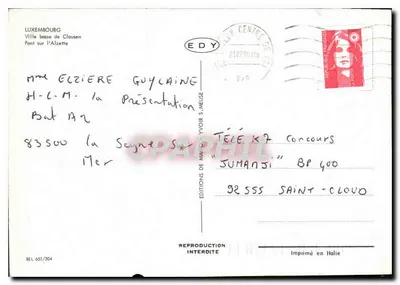 LUXEMBOURG
Ville basse de Clausen
Pont sur l'Alzette
EDY
Mme ELZIERE GUYLAINE
H-L-M la Présentation
Bat A2
83500 la Seyne Sur
Mer
EDITIONS DE MAI
YVOIR S/MEUSE
TÉLÉ K7 Concours
"JUMANJI" BP 400
92555 SAINT-CLOUD
REPRODUCTION
INTERDITE
Imprimé en Italie
BEL 651/304